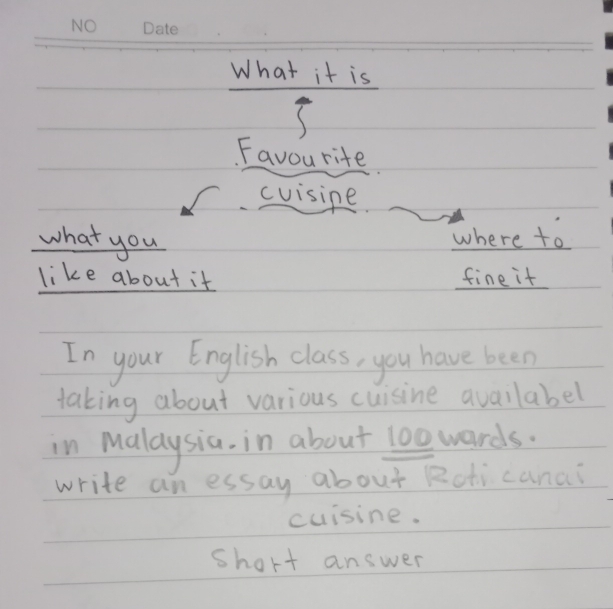 NO Date
What it is
Favourite
cuisine
what you
like about it
where to
fine it
In your English class, you have been
taking about various cuisine availabel
in Malaysia. in about 100 wards.
write an essay about Roti canai
cuisine.
Short answer